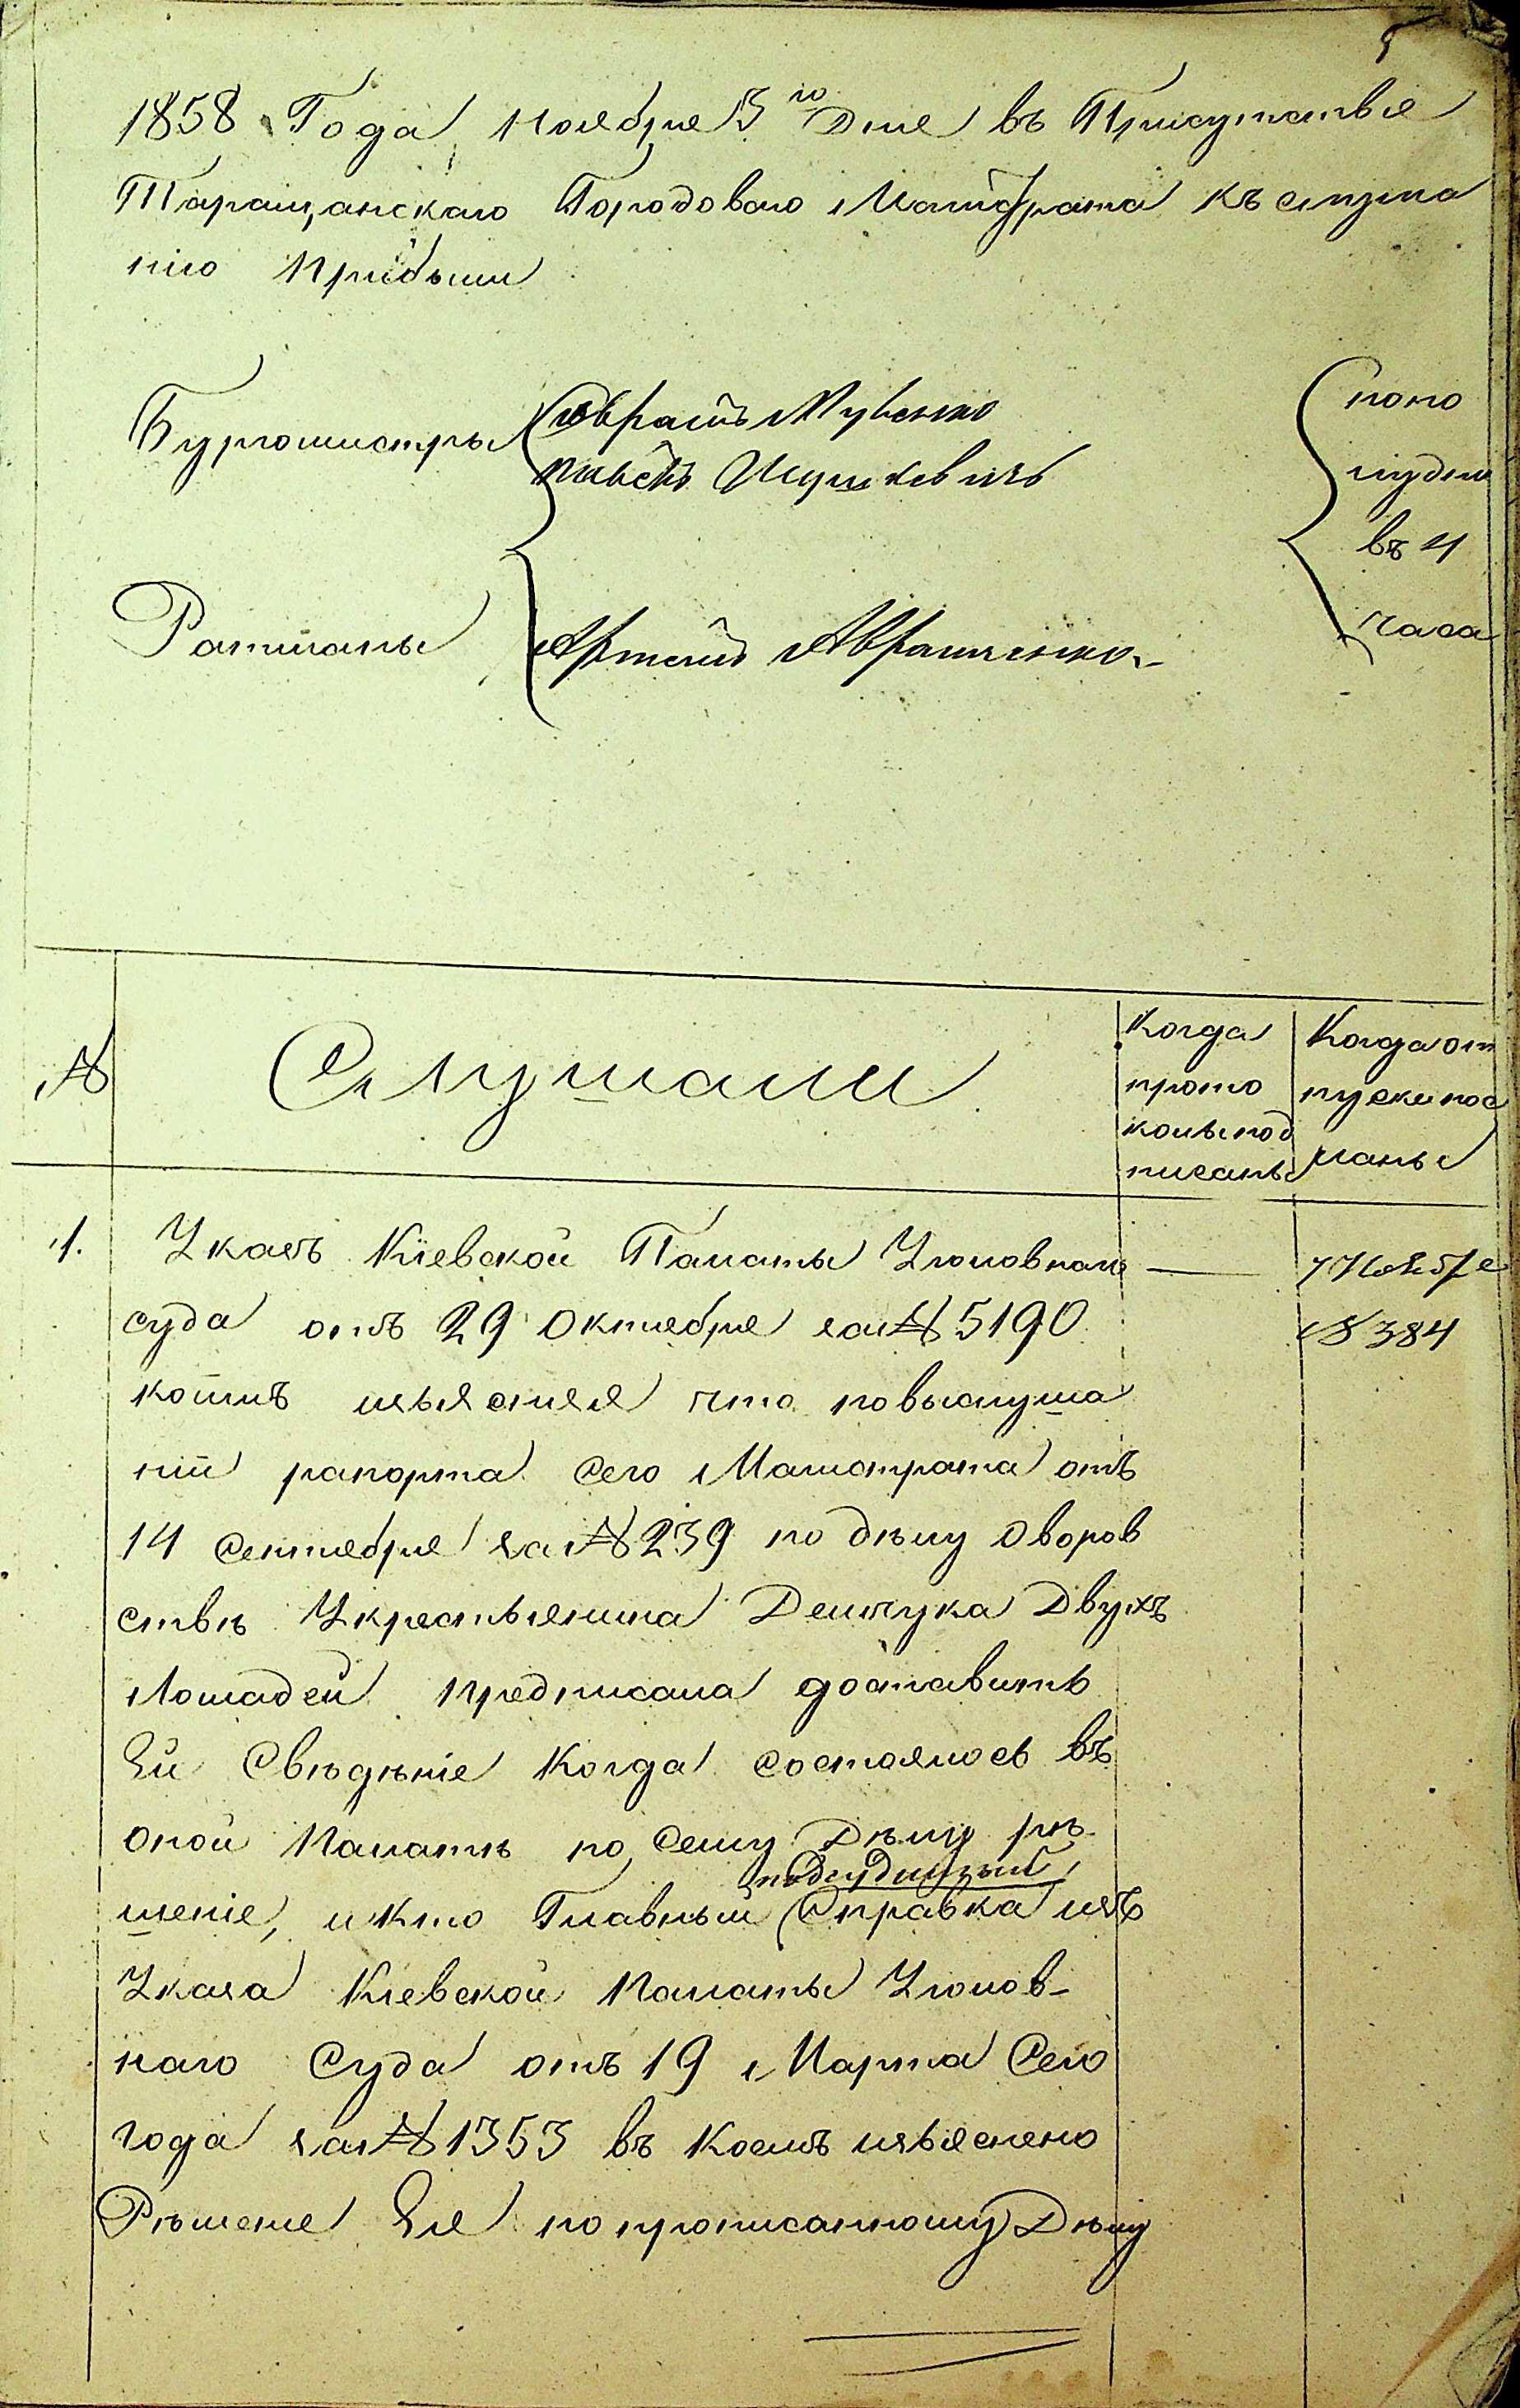 5
1858 Года Ноября 3го Дня въ Присутствіе
Таращанского Городоваго Магистрата къ слуша
нію прибыли
Бургомистры
Ратманы
Артемъ Авраменко
попо
лудни
въ 4
часа
№
Слушали
Когда
прото
колы под
писаны
Когда от
пуски пос
ланы
1.
Указъ Кіевской Палаты Уголовнаго
суда отъ 29 Октября за № 5190
коимъ изъясняя что по выслуша
ніи рапорта сего Магистрата отъ
14 сентября за № 239 по дѣлу о воров
ствѣ У крестьянина Демчука Двухъ
Лошадей предписала доставить
Ей Свѣдѣніе Когда состоялось въ
оной Палатѣ по сему Дѣлу рѣ-
подсудимый
шеніе, и кто Главный Справка изъ
Указа Кіевской Палаты Уголов-
наго Суда отъ 19 Марта Сего
года за № 1353 въ коемъ изъяснено
Рѣшеніе Ея по прописанному Дѣлу
7 Ноября
№ 384